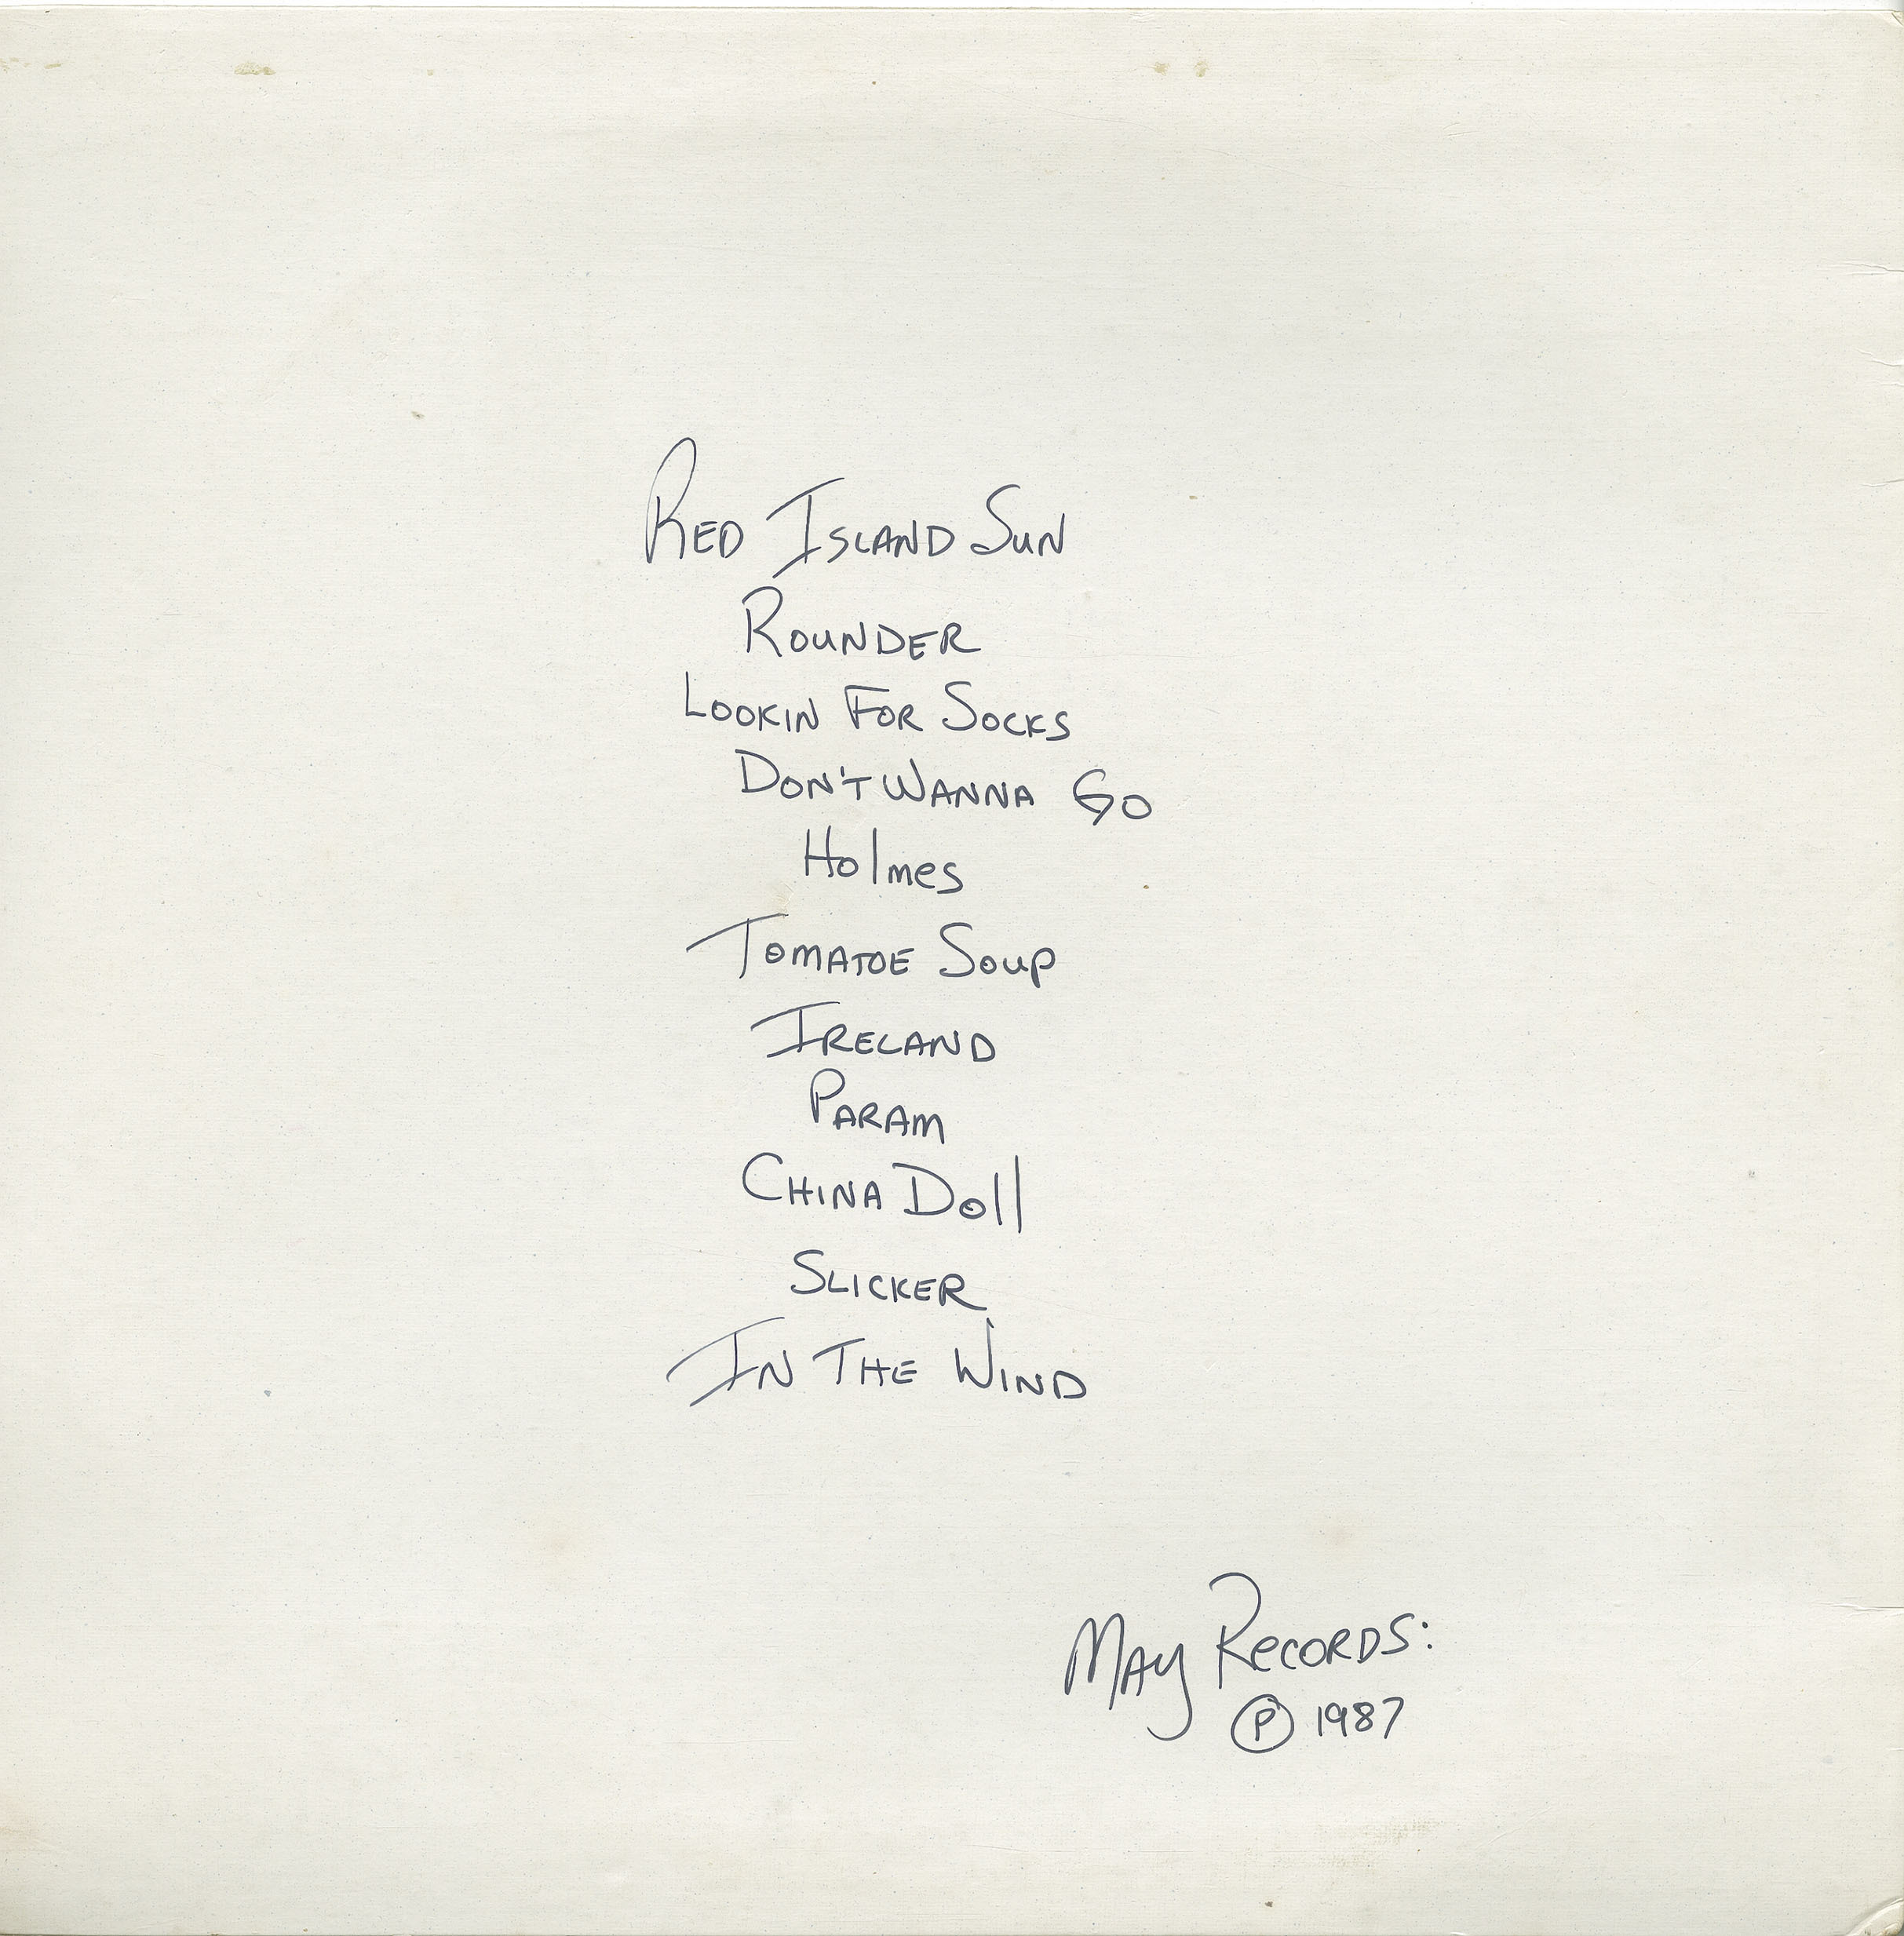 Red Island Sun
Rounder
Lookin For Socks
Don't Wanna Go
Holmes
Tomatoe Soup
Ireland
Param
China Doll
Slicker
In The Wind
May Records:
℗ 1987